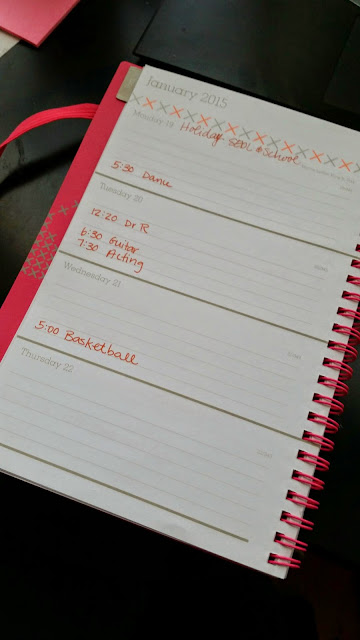 January 2015
Monday 19
Holiday SEDL & School
5:30 Dance
Tuesday 20
12:20 Dr R
6:30 Guitar
7:30 Acting
Wednesday 21
5:00 Basketball
Thursday 22